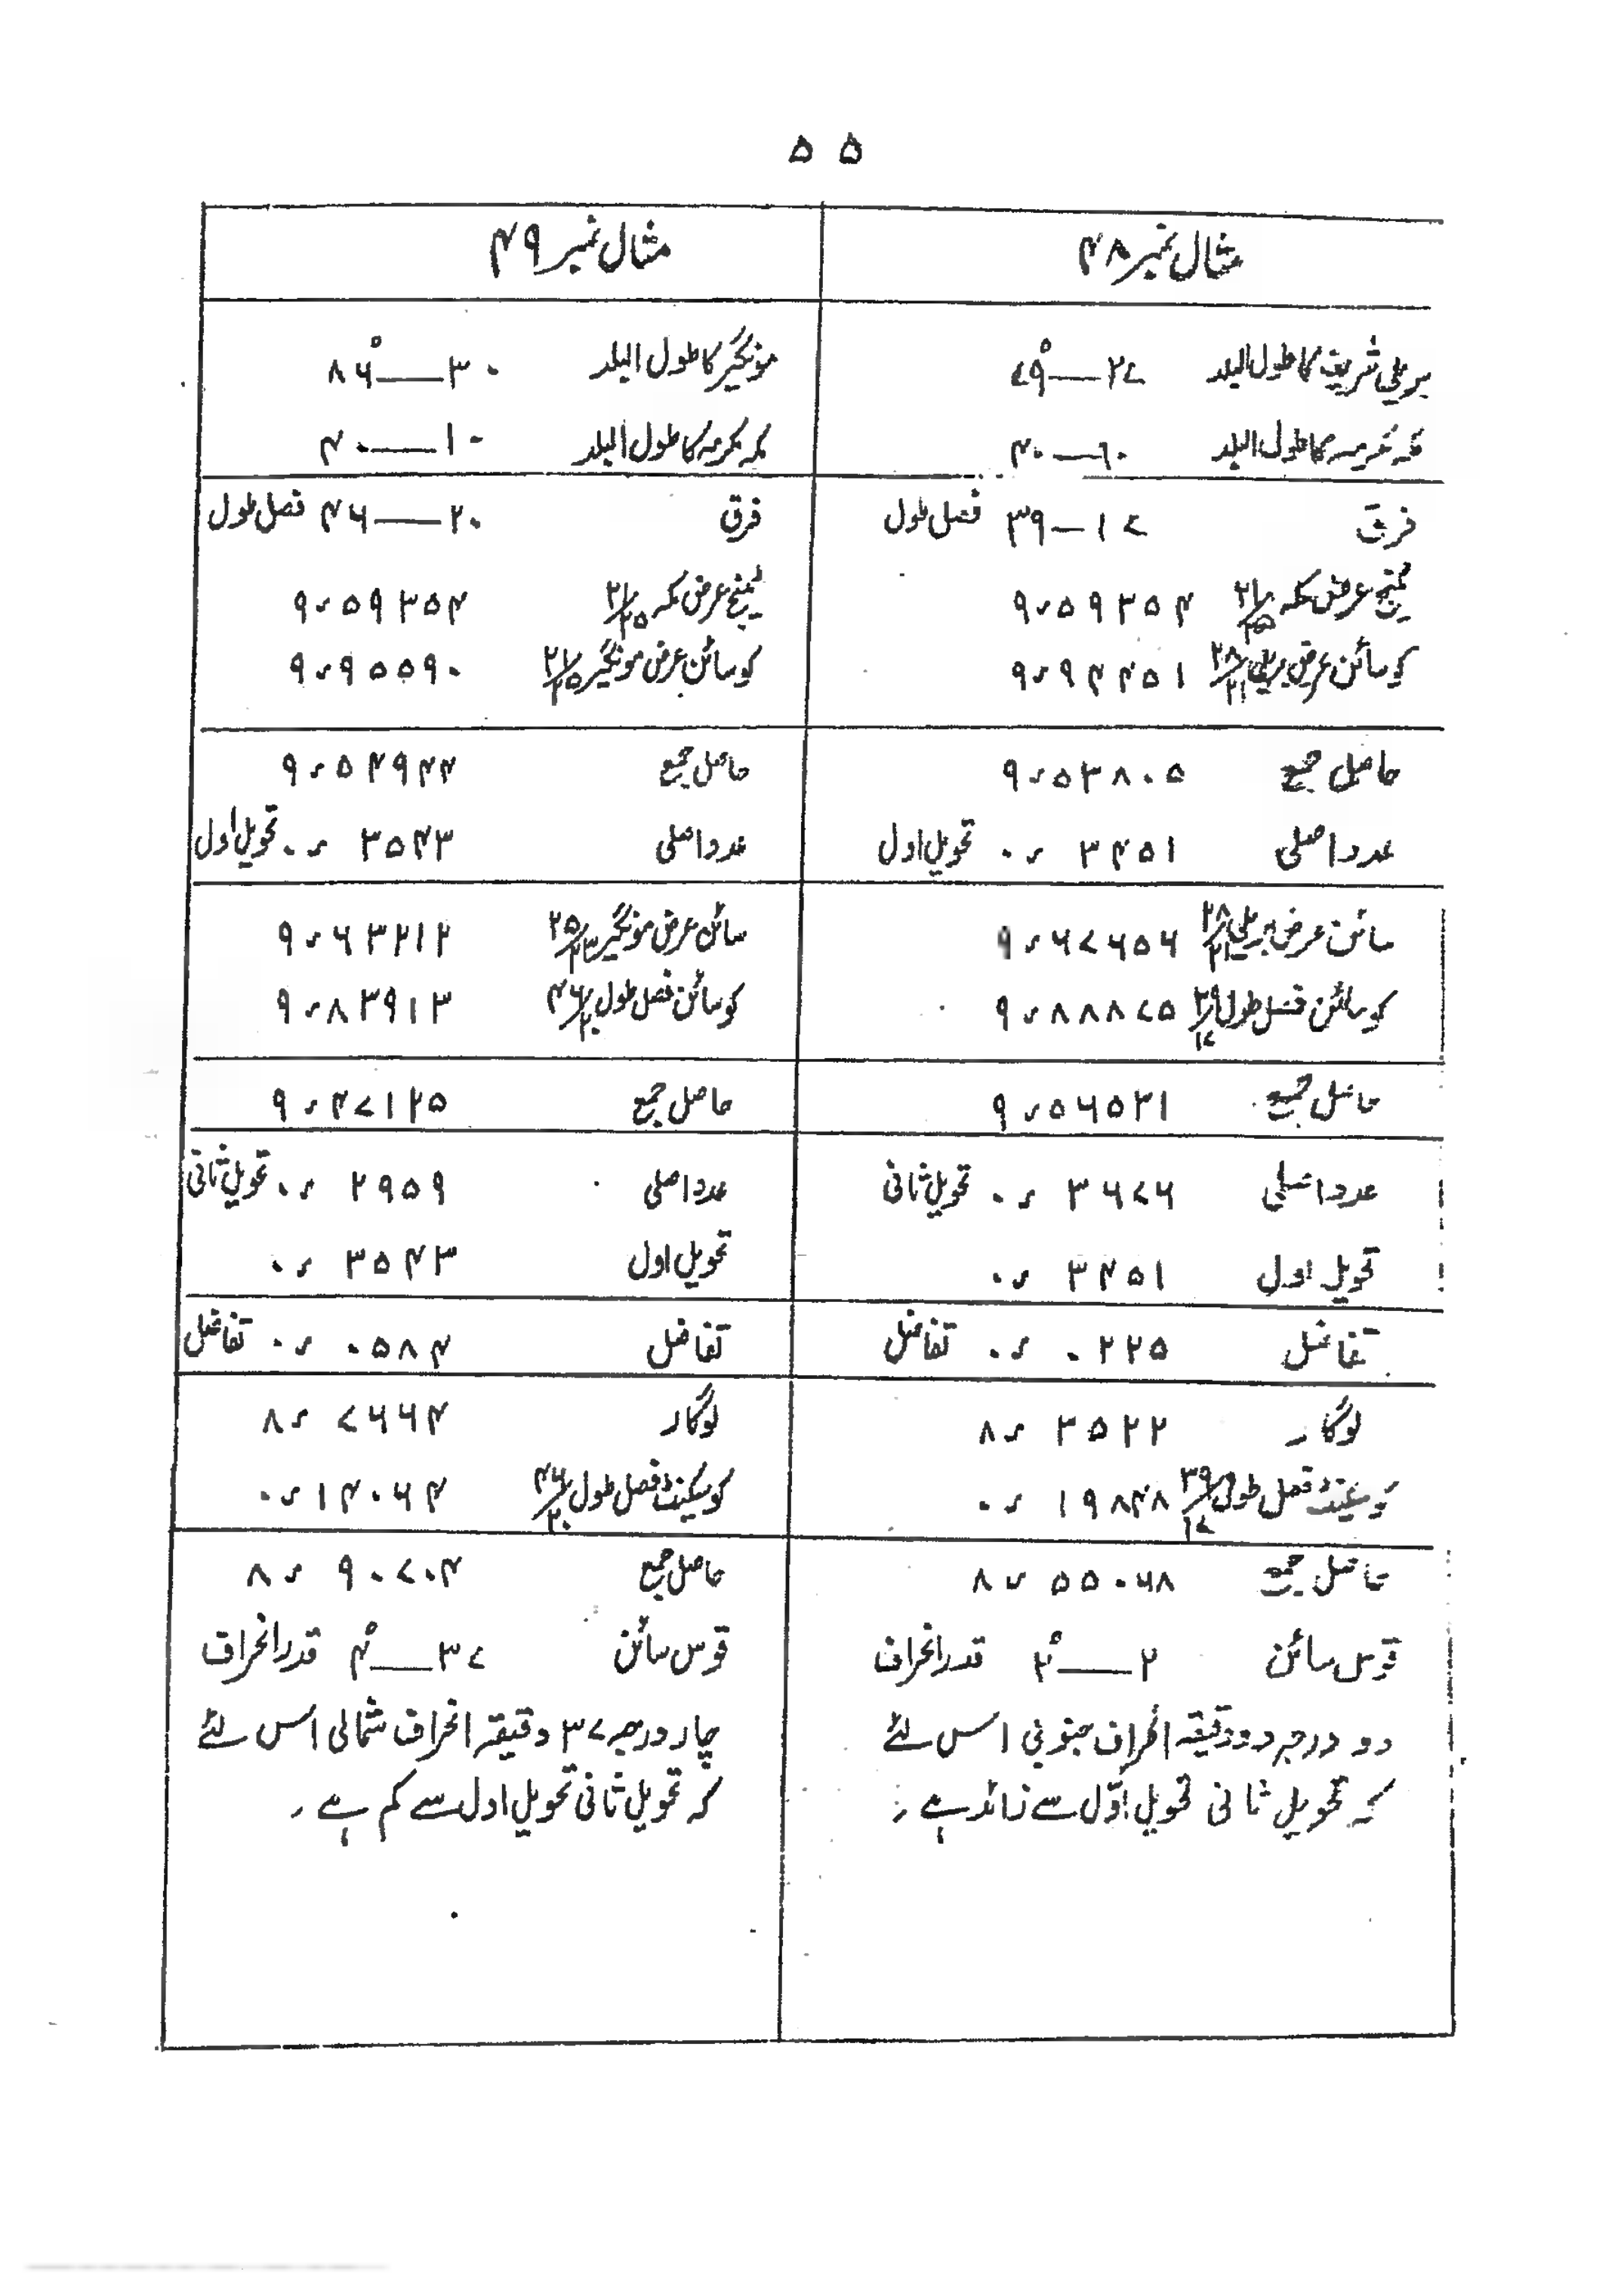 ۵۵
مثال نمبر ۴۸
بریلی شریف کا طول البلد ۷۹°—۲۷
مکہ مکرمہ کا طول البلد ۴۰—۱۰
فرق ۳۹—۱۷ فصل طول
ٹینج عرض مکہ ۲۱/۲۵ ۹ء۵۹۳۵۴
کوسائن عرض بریلی ۲۸/۲۱ ۹ء۹۴۴۵۱
حاصل جمع ۹ء۵۳۸۰۵
عدد اصلی ۰ء۳۴۵۱ تحویل اول
سائن عرض بریلی ۲۸/۲۱ ۹ء۶۷۶۵۶
کوسائن فصل طول ۳۹/۱۷ ۹ء۸۸۸۷۵
حاصل جمع ۹ء۵۶۵۳۱
عدد اصلی ۰ء۳۶۷۶ تحویل ثانی
تحویل اول ۰ء۳۴۵۱
تفاضل ۰ء۰۲۲۵ تفاضل
لوگار ۸ء۳۵۲۲
کوسیکنٹ فصل طول ۳۹/۱۷ ۰ء۱۹۸۴۸
حاصل جمع ۸ء۵۵۰۶۸
قوس سائن ۲°—۲ قدر انحراف
دو درجہ دو دقیقہ انحراف جنوبی اس لئے
کہ تحویل ثانی تحویل اوّل سے زائد ہے ،
مثال نمبر ۴۹
مونگیر کا طول البلد ۸۶°—۳۰
مکہ مکرمہ کا طول البلد ۴۰—۱۰
فرق ۴۶—۲۰ فصل طول
ٹینج عرض مکہ ۲۱/۲۵ ۹ء۵۹۳۵۴
کوسائن عرض مونگیر ۲۱/۲۵ ۹ء۹۵۵۹۰
حاصل جمع ۹ء۵۴۹۴۴
عدد اصلی ۰ء۳۵۴۳ تحویل اول
سائن عرض مونگیر ۲۵/۲۳ ۹ء۶۳۲۱۲
کوسائن فصل طول ۴۶/۲۰ ۹ء۸۳۹۱۳
حاصل جمع ۹ء۴۷۱۲۵
عدد اصلی ۰ء۲۹۵۹ تحویل ثانی
تحویل اول ۰ء۳۵۴۳
تفاضل ۰ء۰۵۸۴ تفاضل
لوگار ۸ء۷۶۶۴
کوسیکنٹ فصل طول ۴۶/۲۰ ۰ء۱۴۰۶۴
حاصل جمع ۸ء۹۰۷۰۴
قوس سائن ۴°—۳۷ قدر انحراف
چار درجہ ۳۷ دقیقہ انحراف شمالی اس لئے
کہ تحویل ثانی تحویل اول سے کم ہے ،